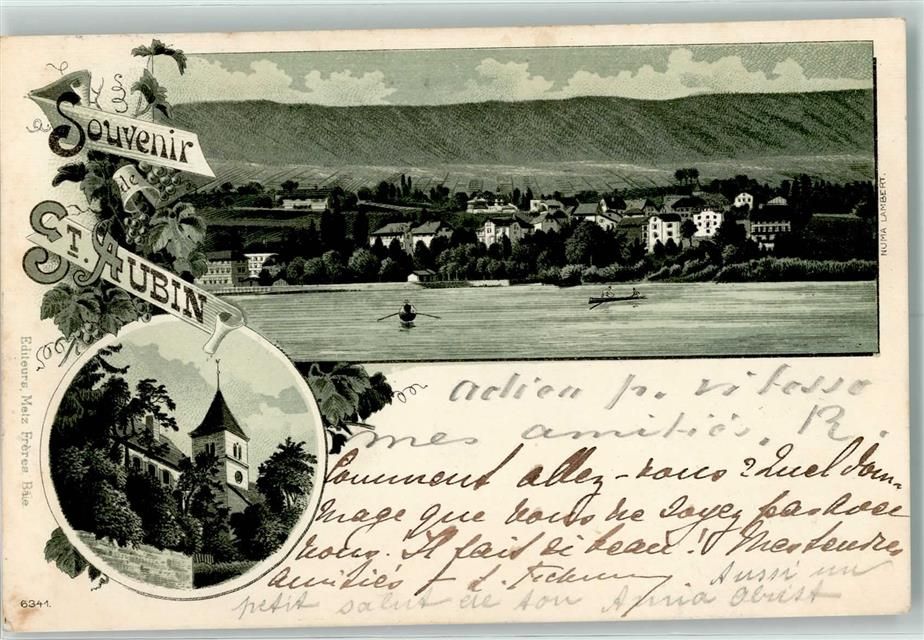 Souvenir
de
St. Aubin
NUMA LAMBERT.
Editeurs, Metz Frères, Bâle
6341.
adieu p. vitesse
mes amitiés. R.
Comment allez-vous? Quel dom-
mage que vous ne soyez pas avec
nous. Il fait si beau! Mes tendres
amitiés
Aussi un
petit salut de ton Anna Obrist